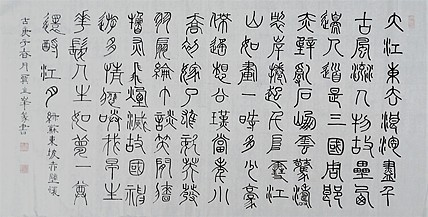 大江東去浪淘盡千
古風流人物故壘西
邊人道是三國周郎
赤壁亂石崩雲驚濤
裂岸捲起千堆雪江
山如畫一時多少豪
傑遙想公瑾當年小
喬初嫁了雄姿英發
羽扇綸巾談笑間檣
櫓灰飛煙滅故國神
遊多情應笑我早生
華髮人生如夢一尊
還酹江月 蘇東坡赤壁懷
古庚子春月立華篆書